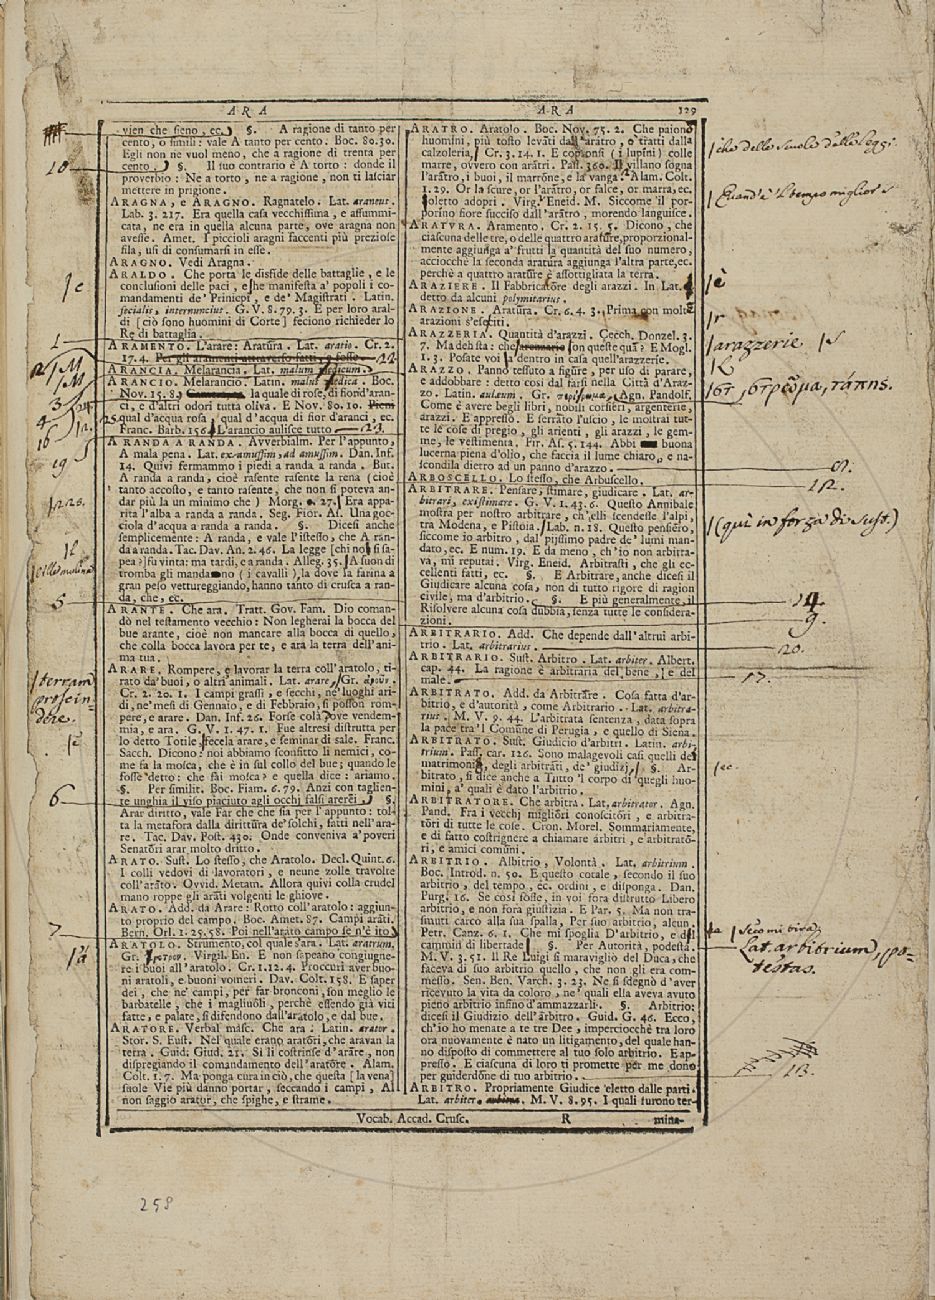 ARA
ARA 129
vien che sieno, ec. §. A ragione di tanto per
cento, o simili: vale A tanto per cento. Boc. 80.30.
Egli non ne vuol meno, che a ragione di trenta per
cento. §. Il suo contrario è A torto: donde il
proverbio: Ne a torto, ne a ragione, non ti lasciar
mettere in prigione.
ARAGNA, e ARAGNO. Ragnatelo. Lat. araneus.
Lab. 3. 217. Era quella casa vecchissima, e affummi-
cata, ne era in quella alcuna parte, ove aragna non
avesse. Amet. I piccioli aragni faccenti più preziose
fila, usi di consumarsi in esse.
ARAGNO. Vedi Aragna.
ARALDO. Che porta le disfide delle battaglie, e le
conclusioni delle paci, e che manifesta a' popoli i co-
mandamenti de' Principi, e de' Magistrati. Latin.
fecialis, internuncius. G. V. 8. 79. 3. E per loro aral-
di [ciò sono huomini di Corte] feciono richiedere lo
Re di battaglia.
ARAMENTO. L'arare: Aratura. Lat. aratio. Cr. 2.
17. 4. Per gli aramenti attraverso fatti, o fosse.
ARANCIA. Melarancia. Lat. malum medicum.
ARANCIO. Melarancio. Latin. malus medica. Boc.
Nov. 15. 8. la quale di rose, di fior d'aran-
ci, e d'altri odori tutta oliva. E Nov. 80. 10. Pieni
qual d'acqua rosa, qual d'acqua di fior d'aranci, ec.
Franc. Barb. 156. L'arancio aulisce tutto
A RANDA A RANDA. Avverbialm. Per l'appunto,
A mala pena. Lat. examussim, ad amussim. Dan. Inf.
14. Quivi fermammo i piedi a randa a randa. But.
A randa a randa, cioè rasente rasente la rena (cioè
tanto accosto, e tanto rasente, che non si poteva an-
dar più la un minimo che) Morg. 27. Era appa-
rita l'alba a randa a randa. Seg. Fior. As. Una goc-
ciola d'acqua a randa a randa. §. Dicesi anche
semplicemente: A randa, e vale l'istesso, che A ran-
da a randa. Tac. Dav. An. 2. 46. La legge [chi nol si sa-
pea?] fu vinta: ma tardi, e a randa. Alleg. 35. A suon di
tromba gli mandano (i cavalli), la dove sa farina a
gran peso vettureggiando, hanno tanto di crusca a ran-
da, che, ec.
ARANTE. Che ara. Tratt. Gov. Fam. Dio coman-
dò nel testamento vecchio: Non legherai la bocca del
bue arante, cioè non mancare alla bocca di quello,
che colla bocca lavora per te, e ara la terra dell'ani-
ma tua.
ARARE. Rompere, e lavorar la terra coll'aratolo, ti-
rato da' buoi, o altri animali. Lat. arare, Gr. ἀροῦν.
Cr. 2. 20. 1. I campi grassi, e secchi, ne' luoghi ari-
di, ne' mesi di Gennaio, e di Febbraio, si posson rom-
pere, e arare. Dan. Inf. 26. Forse colà ove vendem-
mia, e ara. G. V. 1. 47. 1. Fue altresì distrutta per
lo detto Totile, fecela arare, e seminar di sale. Franc.
Sacch. Dicono: noi abbiamo sconfitto li nemici, co-
me fa la mosca, che è in sul collo del bue; quando le
fosse detto: che fai mosca? e quella dice: ariamo.
§. Per similit. Boc. Fiam. 6. 79. Anzi con taglien-
te unghia il viso piaciuto agli occhi falsi arerei. §.
Arar diritto, vale Far che che sia per l'appunto: tol-
ta la metafora dalla dirittura de' solchi, fatti nell'ara-
re. Tac. Dav. Post. 430. Onde conveniva a' poveri
Senatori arar molto dritto.
ARATO. Sust. Lo stesso, che Aratolo. Decl. Quint. 6.
I colli vedovi di lavoratori, e neune zolle travolte
coll'arato. Ovvid. Metam. Allora quivi colla crudel
mano roppe gli arati volgenti le ghiove.
ARATO. Add. da Arare: Rotto coll'aratolo: aggiun-
to proprio del campo. Boc. Amet. 87. Campi arati.
Bern. Orl. 1. 25. 58. Poi nell'arato campo se n'è ito
ARATOLO. Strumento, col quale s'ara. Lat. aratrum,
Gr. ἄροτρον. Virgil. En. E non sapeano congiugne-
re i buoi all'aratolo. Cr. 1. 12. 4. Proccuri aver buo-
ni aratoli, e buoni vomeri. Dav. Colt. 158. E saper
dei, che ne' campi, per far bronconi, son meglio le
barbatelle, che i magliuoli, perchè essendo già viti
fatte, e palate, si difendono dall'aratolo, e dal bue.
ARATORE. Verbal masc. Che ara. Latin. arator.
Stor. S. Eust. Nel quale erano aratori, che aravan la
terra. Guid. Giud. 21. Si li costrinse d'arare, non
dispregiando il comandamento dell'aratore. Alam.
Colt. 1. 7. Ma ponga cura in ciò, che questa [la vena]
suole Vie più danno portar, seccando i campi, Al
non saggio arator, che spighe, e strame.
ARATRO. Aratolo. Boc. Nov. 75. 2. Che paiono
huomini, più tosto levati dall'aratro, e tratti dalla
calzoleria, Cr. 3. 14. 1. E coponsi (i lupini) colle
marre, ovvero con aratri. Pass. 360. Il villano sogna
l'aratro, i buoi, il marrone, e la vanga. Alam. Colt.
1. 29. Or la scure, or l'aratro, or falce, or marra, ec.
soletto adopri. Virg. Eneid. M. Siccome 'l por-
porino fiore succiso dall'aratro, morendo languisce.
ARATURA. Aramento. Cr. 2. 15. 5. Dicono, che
ciascuna delle tre, o delle quattro arature, proporzional-
mente aggiunga a' frutti la quantità del suo numero,
acciocchè la seconda aratura aggiunga l'altra parte, ec.
perchè a quattro arature è assottigliata la terra.
ARAZIERE. Il Fabbricatore degli arazzi. In Lat.
detto da alcuni polymitarius.
ARAZIONE. Aratura. Cr. 6. 4. 3. Prima con molte
arazioni s'eserciti.
ARAZZERIA. Quantità d'arazzi. Cecch. Donzel. 3.
7. Ma de h sta: che son queste qua? E Mogl.
1. 3. Posate voi la dentro in casa quell'arazzerie.
ARAZZO. Panno tessuto a figure, per uso di parare,
e addobbare: detto così dal farsi nella Città d'Araz-
zo. Latin. aulaeum. Gr. Agn. Pandolf.
Come è avere begli libri, nobili corsieri, argenterie,
arazzi. E appresso. E serrato l'uscio, le mostrai tut-
te le cose di pregio, gli arienti, gli arazzi, le gem-
me, le vestimenta. Fir. As. 5. 144. Abbi buona
lucerna piena d'olio, che faccia il lume chiaro, e na-
scondila dietro ad un panno d'arazzo.
ARBOSCELLO. Lo stesso, che Arbuscello.
ARBITRARE. Pensare, stimare, giudicare. Lat. ar-
bitrari, existimare. G. V. 1. 43. 6. Questo Annibale
mostra per nostro arbitrare, ch'elli scendesse l'alpi,
tra Modena, e Pistoia. Lab. n. 18. Questo pensiero,
siccome io arbitro, dal piissimo padre de' lumi man-
dato, ec. E num. 19. E da meno, ch'io non arbitra-
va, mi reputai. Virg. Eneid. Arbitrasti, che gli ec-
cellenti fatti, ec. §. E Arbitrare, anche dicesi il
Giudicare alcuna cosa, non di tutto rigore di ragion
civile, ma d'arbitrio. §. E più generalmente, il
Risolvere alcuna cosa dubbia, senza tutte le considera-
zioni.
ARBITRARIO. Add. Che depende dall'altrui arbi-
trio. Lat. arbitrarius.
ARBITRARIO. Sust. Arbitro. Lat. arbiter. Albert.
cap. 44. La ragione è arbitraria del bene, e del
male.
ARBITRATO. Add. da Arbitrare. Cosa fatta d'ar-
bitrio, e d'autorità, come Arbitrario. Lat. arbitra-
rius. M. V. 9. 44. L'arbitrata sentenza, data sopra
la pace tra 'l Comune di Perugia, e quello di Siena.
ARBITRATO. Sust. Giudicio d'arbitri. Latin. arbi-
trium. Pass. car. 126. Sono malagevoli casi quelli de'
matrimoni, degli arbitrati, de' giudizi, §. Ar-
bitrato, si dice anche a Tutto 'l corpo di quegli huo-
mini, a' quali è dato l'arbitrio.
ARBITRATORE. Che arbitra. Lat. arbitrator. Agn.
Pand. Fra i vecchj migliori conoscitori, e arbitra-
tori di tutte le cose. Cron. Morel. Sommariamente,
e di fatto costrignere a chiamare arbitri, e arbitrato-
ri, e amici comuni.
ARBITRIO. Albitrio, Volontà. Lat. arbitrium.
Boc. Introd. n. 50. E questo cotale, secondo il suo
arbitrio, del tempo, ec. ordini, e disponga. Dan.
Purg. 16. Se così fosse, in voi fora distrutto Libero
arbitrio, e non fora giustizia. E Par. 5. Ma non tra-
smuti carco alla sua spalla, Per suo arbitrio, alcun.
Petr. Canz. 6. 1. Che mi spoglia D'arbitrio, e dal
cammin di libertade §. Per Autorità, podestà.
M. V. 3. 51. Il Re Luigi si maravigliò del Duca, che
faceva di suo arbitrio quello, che non gli era com-
messo. Sen. Ben. Varch. 3. 23. Ne si sdegnò d'aver
ricevuto la vita da coloro, ne' quali ella aveva avuto
pieno arbitrio infino d'ammazzarli. §. Arbitrio:
dicesi il Giudizio dell'arbitro. Guid. G. 46. Ecco,
ch'io ho menate a te tre Dee, imperciocchè tra loro
ora nuovamente è nato un litigamento, del quale han-
no disposto di commettere al tuo solo arbitrio. E ap-
presso. E ciascuna di loro ti promette per me dono
per guiderdone di tuo arbitrio.
ARBITRO. Propriamente Giudice eletto dalle parti.
Lat. arbiter. M. V. 8. 95. I quali furono ter-
Vocab. Accad. Crusc. R mina-
10
1
M
M
3
4
16
19
5
terram
proscin-
dere.
6
7
Quand'è 'l tempo migliore
è
r
arazzerie
(qui in forza di Sust.)
12.
14.
9.
20.
17.
ec.
Lat. arbitrium, po-
testas.
13.
258